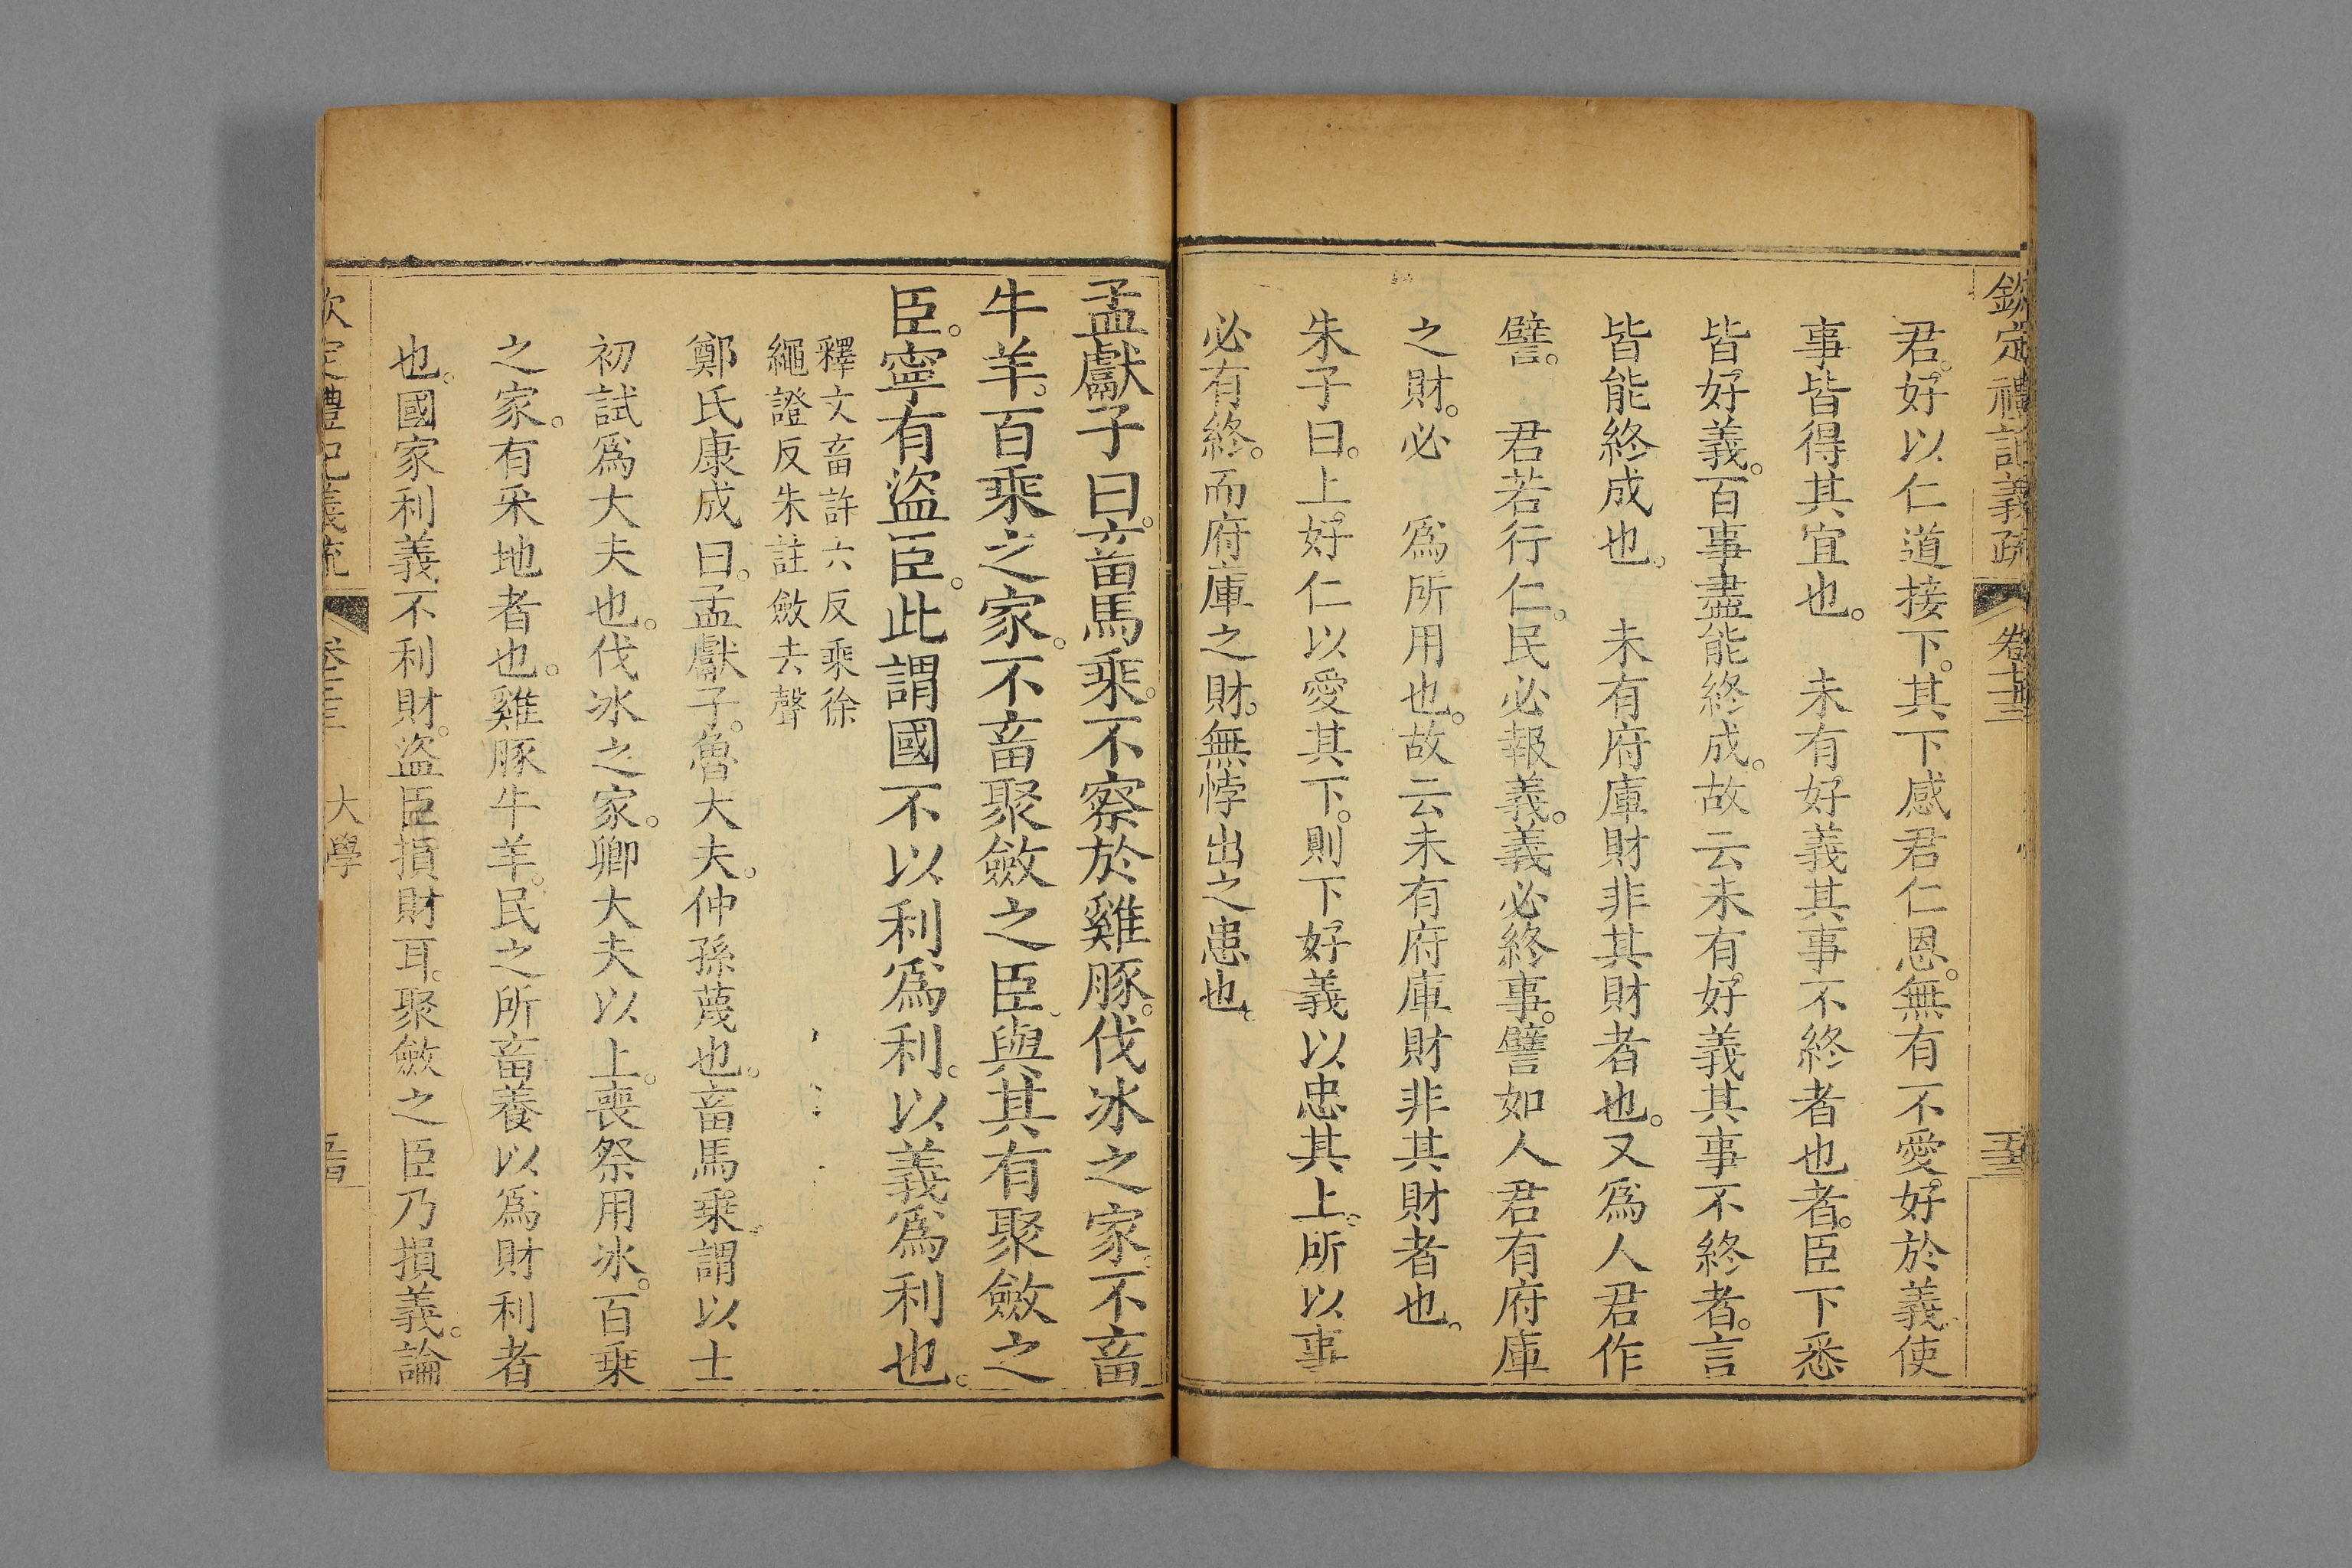 欽定禮記義疏 卷七十三
君。好以仁道接下。其下感君仁恩。無有不愛。好於義。使
事皆得其宜也。 未有好義其事不終者也者。臣下悉
皆好義。百事盡能終成。故云未有好義其事不終者。言
皆能終成也。 未有府庫財非其財者也。又爲人君作
譬。 君若行仁。民必報義。義必終事。譬如人君有府庫
之財。必 爲所用也。故云未有府庫財非其財者也。
朱子曰。上好仁以愛其下。則下好義以忠其上。所以事
必有終。而府庫之財。無悖出之患也。
孟獻子曰。畜馬乘。不察於雞豚。伐冰之家。不畜
牛羊。百乘之家。不畜聚斂之臣。與其有聚斂之
臣。寧有盜臣。此謂國不以利爲利。以義爲利也。
釋文畜許六反乘徐
繩證反朱註斂去聲
鄭氏康成曰。孟獻子。魯大夫。仲孫蔑也。畜馬乘。謂以士
初試爲大夫也。伐冰之家。卿大夫以上。喪祭用冰。百乘
之家。有采地者也。雞豚牛羊。民之所畜養以爲財利者
也。國家利義不利財。盜臣損財耳。聚斂之臣乃損義。論
欽定禮記義疏 大學